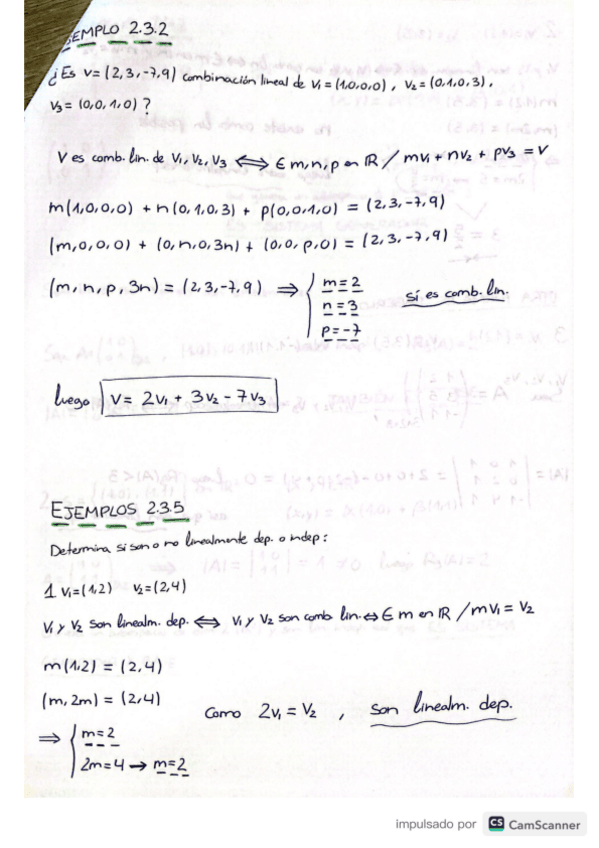 EMPLO 2.3.2
¿Es v=(2,3,-7,9) combinación lineal de v₁=(1,0,0,0), v₂=(0,1,0,3),
v₃=(0,0,1,0)?
V es comb. lin. de V₁, V₂, V₃ ⟺ ∈ m,n,p en ℝ / mv₁ + nv₂ + pv₃ = V
m(1,0,0,0) + n(0,1,0,3) + p(0,0,1,0) = (2,3,-7,9)
(m,0,0,0) + (0,n,0,3n) + (0,0,p,0) = (2,3,-7,9)
(m,n,p,3n) = (2,3,-7,9) ⇒ { m=2
n=3
p=-7
sí es comb. lin.
luego V = 2v₁ + 3v₂ - 7v₃
EJEMPLOS 2.3.5
Determina si son o no linealmente dep. o indep:
1 V₁=(1,2) V₂=(2,4)
V₁ y V₂ son linealm. dep. ⟺ V₁ y V₂ son comb lin. ⇔ ∈ m en ℝ / mV₁ = V₂
m(1,2) = (2,4)
(m,2m) = (2,4)
⇒ { m=2
2m=4 → m=2
Como 2v₁ = V₂, son linealm. dep.
impulsado por CS CamScanner